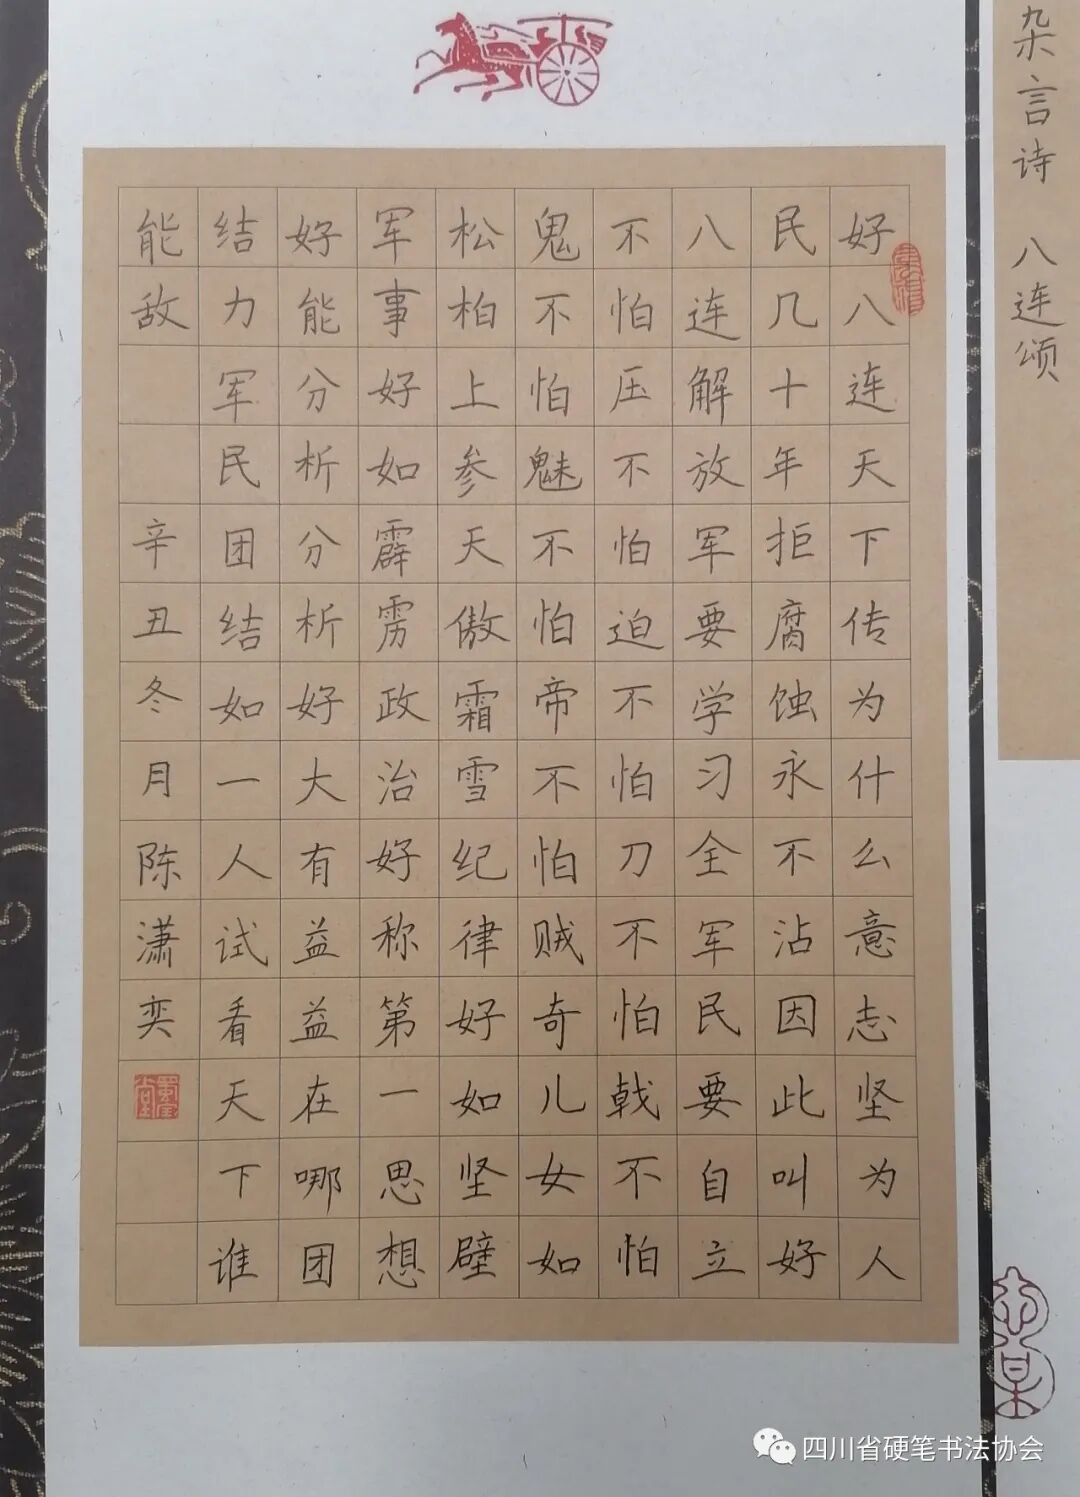 杂言诗 八连颂
好八连天下传为什么意志坚为人
民几十年拒腐蚀永不沾因此叫好
八连解放军要学习全军民要自立
不怕压不怕迫不怕刀不怕戟不怕
鬼不怕魅不怕帝不怕贼奇儿女如
松柏上参天傲霜雪纪律好如坚壁
军事好如霹雳政治好称第一思想
好能分析分析好大有益益在哪团
结力军民团结如一人试看天下谁
能敌 辛丑冬月陈潇奕
四川省硬笔书法协会